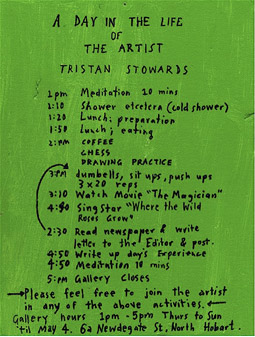 A DAY IN THE LIFE
OF
THE ARTIST
TRISTAN STOWARDS
1pm Meditation 10 mins
1:10 Shower etcetera (cold shower)
1:20 Lunch; preparation
1:50 Lunch; eating
2:pm COFFEE
CHESS
DRAWING PRACTICE
3:pm dumbells, sit ups, push ups
3 x 20 reps
3:10 Watch Movie "The Magician"
4:90 Sing Star "Where the Wild
Roses Grow"
2:30 Read newspaper & write
letter to the Editor & post.
4:50 Write up day's Experience
4:50 Meditation 10 mins
5:pm Gallery Closes
→Please feel free to join the artist
in any of the above activities.←
Gallery hours 1pm - 5pm Thurs to Sun
'til May 4. 6a Newdegate St, North Hobart.